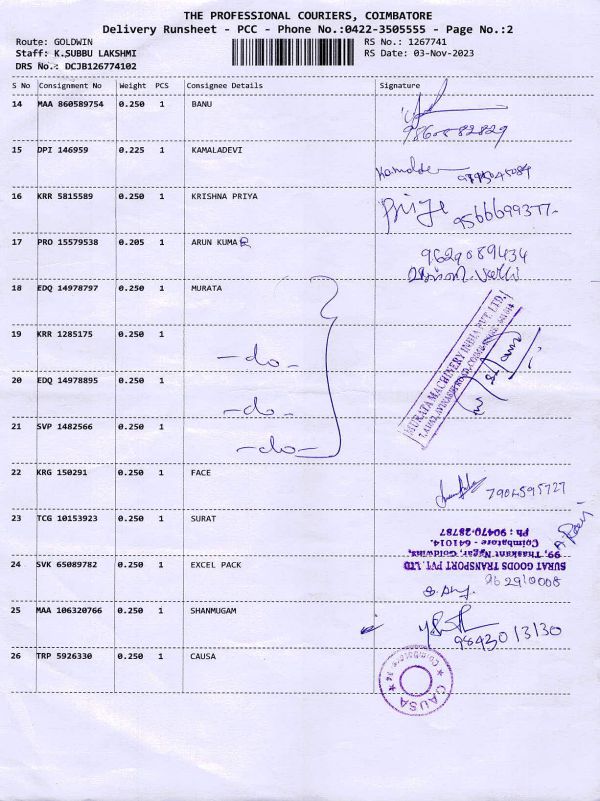 THE PROFESSIONAL COURIERS, COIMBATORE
Delivery Runsheet - PCC - Phone No.:0422-3505555 - Page No.:2
Route: GOLDWIN
Staff: K.SUBBU LAKSHMI
DRS No.: DCJB126774102
RS No.: 1267741
RS Date: 03-Nov-2023
S No Consignment No Weight PCS Consignee Details Signature
14 MAA 860589754 0.250 1 BANU
15 DPI 146959 0.225 1 KAMALADEVI
16 KRR 5815589 0.250 1 KRISHNA PRIYA
Priya 9566699377-
17 PRO 15579538 0.205 1 ARUN KUMAR
9629089434
18 EDQ 14978797 0.250 1 MURATA
19 KRR 1285175 0.250 1
-do-
20 EDQ 14978895 0.250 1
-do-
21 SVP 1482566 0.250 1
-do-
MURATA MACHINERY INDIA PVT. LTD.
22 KRG 150291 0.250 1 FACE
7904595727
23 TCG 10153923 0.250 1 SURAT
A. Ravi
SURAT GOODS TRANSPORT PVT. LTD
99, Thaakant Nagar, Goldwins,
Coimbatore - 641014.
Ph : 90470-28787
24 SVK 65089782 0.250 1 EXCEL PACK
25 MAA 106320766 0.250 1 SHANMUGAM
9843013130
26 TRP 5926330 0.250 1 CAUSA
CAUSA
Coimbatore 14